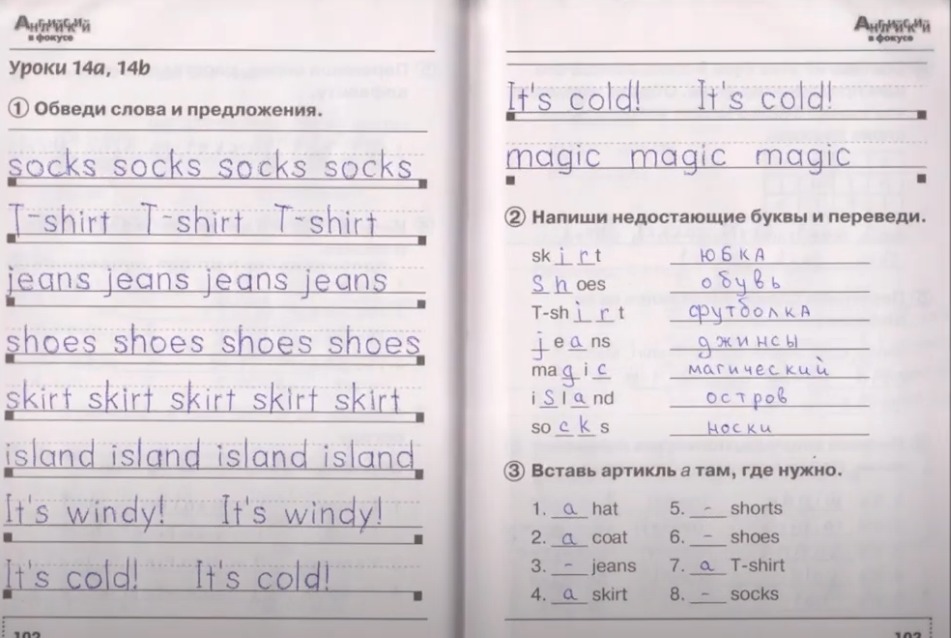 Английский
в фокусе
Уроки 14a, 14b
① Обведи слова и предложения.
socks socks socks socks
T-shirt T-shirt T-shirt
jeans jeans jeans jeans
shoes shoes shoes shoes
skirt skirt skirt skirt skirt
island island island island
It's windy! It's windy!
It's cold! It's cold!
102
Английский
в фокусе
It's cold! It's cold!
magic magic magic
② Напиши недостающие буквы и переведи.
skirt юбка
Shoes обувь
T-shirt футболка
jeans джинсы
magic магический
island остров
socks носки
③ Вставь артикль a там, где нужно.
1. a hat 5. - shorts
2. a coat 6. - shoes
3. - jeans 7. a T-shirt
4. a skirt 8. - socks
103